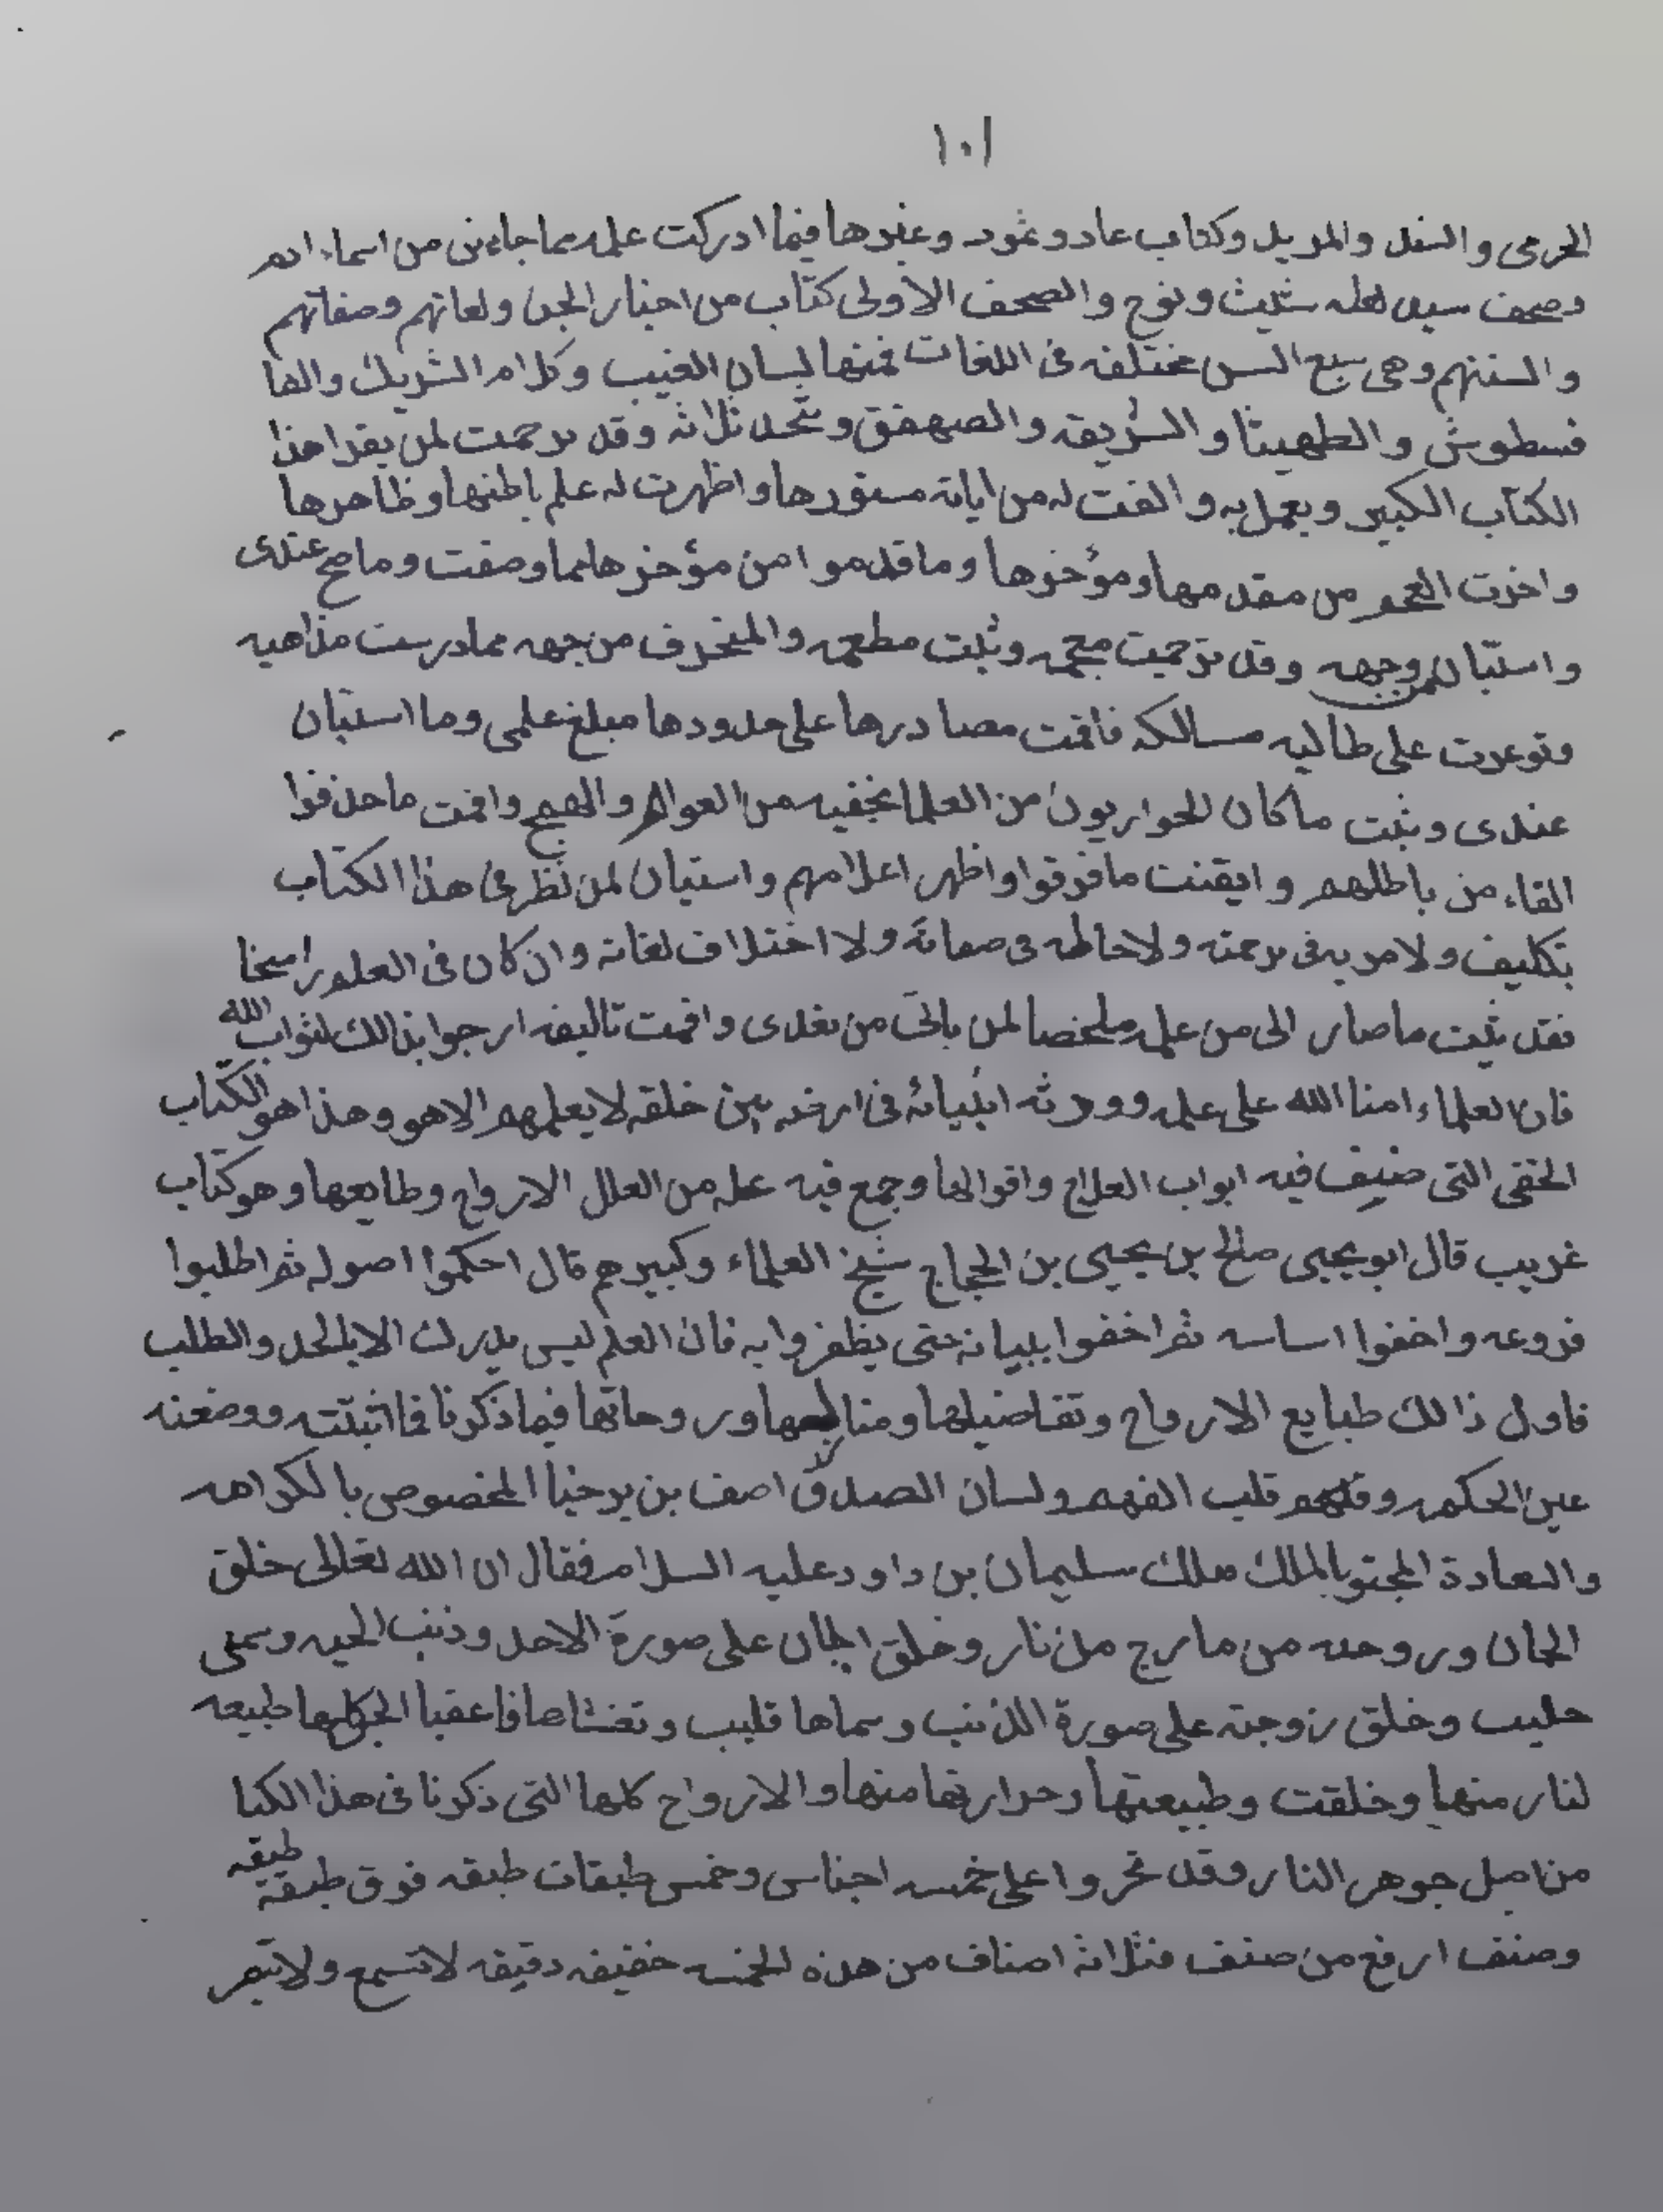 ١٠١
الحرمى والسفل والمريد وكتاب عاد وثمود وغيرها فيما ادركت علمه مما جاءنى من اسماء ادم
وصحف سيدں لعله شليث ونوح والصحف الاولى كتاب من اخبار الجن ولغاتهم وصفاتهم
والسنتهم وهى سبع السن مختلفه فى اللغات فمنها لسان الغيب وكلام الشريك والفا
فسطوش والطهيثا والشريقه والصهفق وتحد ثلاثه وقد ترجمت لمن يقرا هذا
الكتاب الكبير ويعمل به والفت له من اياته مستورها واظهرت له علم باطنها وظاهرها
واخرت العجم من مقدمها ومؤخرها وما قدموا من مؤخرها مما وصفت وما صح عندى
واستبان لمن وجهه وقد ترجمت معجمه وثبت مطعمه والمنحرف من جهه مما درست مذاهبه
وتوعرت على طالبه مسالكه فاقمت مصادرها على حدودها مبلغ علمى وما استبان
عندى وثبت ما كان الحواريون من العلما تخفيه من العوام والهمج واقمت ما حذفوا
القاء من باطلهم وايقنت ما فرقوا واظهر اعلامهم واستبان لمن نظر فى هذا الكتاب
بتكليف ولا مريه فى ترجمته ولا حاطه فى صفاته ولا اختلاف لغاته وان كان فى العلوم راسخا
فقد ثبت ما صار الى من علمه ملخصا لمن ياتى من بعدى واقمت تاليفه ارجوا بذالك لثواب الله
فان العلماء امنا الله على علمه وورثه انبيائه فى ارضه بين خلقه لا يعلمهم الا هو وهذا هو الكتاب
الخفى التى صنيف فيه ابواب العلاج واقوالها وجمع فيه عله من العلل الارواح وطايعها وهو كتاب
غريب قال ابو يحيى صالح بن يحيى بن الحجاج شيخ العلماء وكبيرهم قال احكموا اصوله ثم اطلبوا
فروعه واخفوا اساسه ثم اخفوا ببيانه حتى يظفروا به فان العلم ليس يدرك الا بالجد والطلب
فاول ذالك طبايع الارواح وتفاصيلها ومنا وروحاتها فيما ذكرنا فما اثبتته ووضعته
عين الحكمه وفلهم قلب الفهم ولسان الصدق اصف بن برخيا المخصوص بالكرامه
والسعادة المجتو بالملك ملك سليمان بن داود عليه السلام فقال ان الله تعالى خلق
الجان وروحه من مارج من نار وخلق الجان على صورة الاحد وذنب الحيه وسمى
حليب وخلق زوجته على صورة الذئب وسماها قليب وتغشاها فاعقبا الجن كلها طبيعه
لنار منها وخلقت وطبيعتها وحرارتها منها والارواح كلها التى ذكرنا فى هذا الكتا
من اصل جوهر النار وقد تحروا على خمسه اجناس وخمس طبقات طبقه فوق طبقة طبقه
وصنف ارفع من صنف فثلاثة اصناف من هذه الخمسه خفيفه دقيقه لا تسمع ولا تبصر